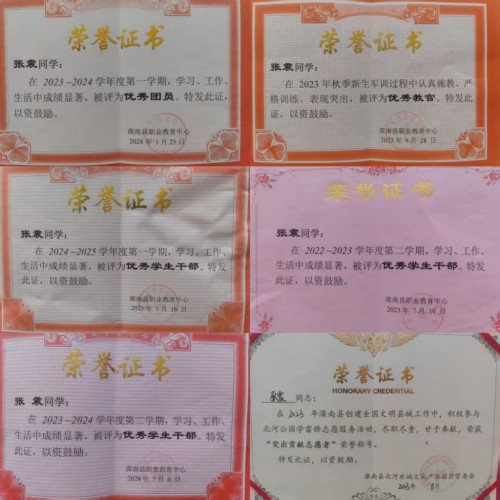 荣誉证书
张震同学：
在 2023-2024 学年度第一学期，学习、工作、
生活中成绩显著，被评为优秀团员。特发此证，
以资鼓励。
滦南县职业教育中心
2024 年 1 月 25 日
荣誉证书
张震同学：
在 2023 年秋季新生军训过程中认真施教、严
格训练、表现突出，被评为优秀教官。特发此证，
以资鼓励。
滦南县职业教育中心
2023 年 9 月 28 日
荣誉证书
张震同学：
在 2024-2025 学年度第一学期，学习、工作、
生活中成绩显著，被评为优秀学生干部。特发
此证，以资鼓励。
滦南县职业教育中心
2025 年 1 月 10 日
荣誉证书
张震同学：
在 2022-2023 学年度第二学期，学习、工作、
生活中成绩显著，被评为优秀学生干部。特发
此证，以资鼓励。
滦南县职业教育中心
2023 年 7 月 10 日
荣誉证书
张 震同学：
在 2023-2024 学年度第二学期，学习、工作、
生活中成绩显著，被评为优秀学生干部。特发此
证，以资鼓励。
滦南县职业教育中心
2024 年 7 月 8 日
荣誉证书
HONORARY CREDENTIAL
张震 同志：
在 2023 年滦南县创建全国文明县城工作中，积极参与
北河公园学雷锋志愿服务活动，尽职尽责，甘于奉献，荣获
“突出贡献志愿者”荣誉称号。
特发此证，以资鼓励。
滦南县北河水城文化产业园管委会
2023年 8月